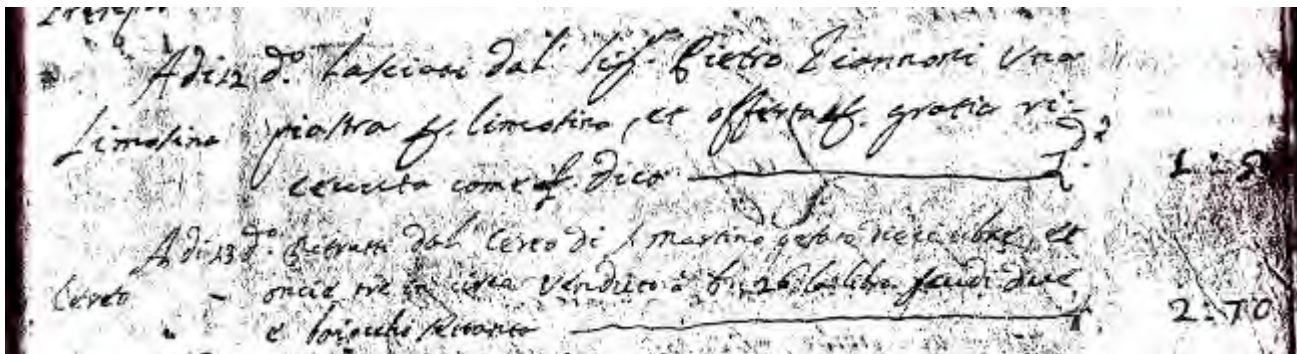 Adi 12 d.º Lasciati dal Sig.r Pietro Giannotti Una
Limosina piastra p. limosina, et offerta p. gratia ri-
ceuuta come p. dico 1-
Adi 13 d.º Ritratti dal Cereo di S. Martino pesato diece libre, et
Cereo - oncie tre in circa Venduto à b. 26 la libra scudi due
e baiocchi settanta 2-70